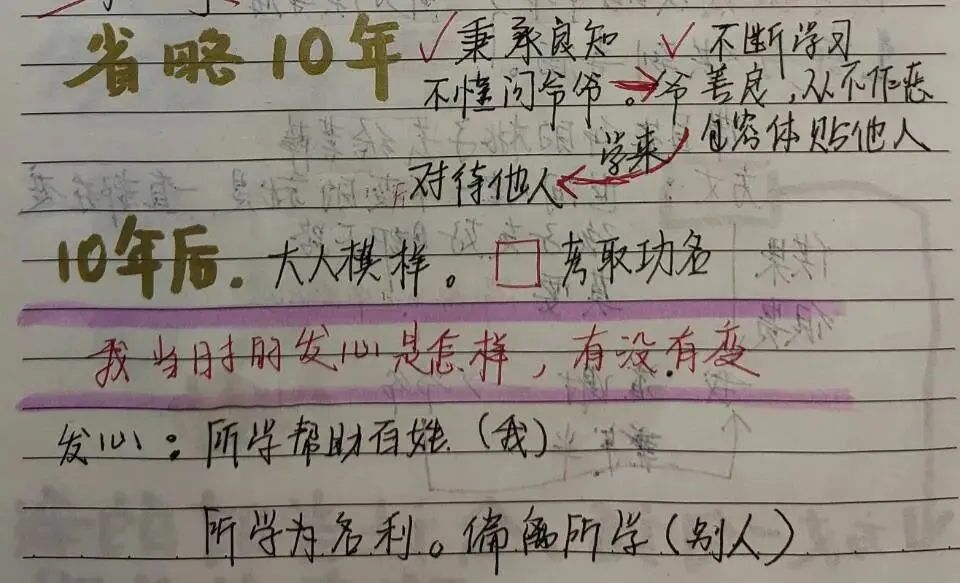 省略10年 ✓秉承良知 ✓不断学习
不懂问爷爷。→爷善良,从不作恶
包容体贴他人
学来
对待他人
10年后. 大人模样。□考取功名
我当时的发心是怎样,有没有变
发心:所学帮助百姓(我)
所学为名利。偏离所学(别人)